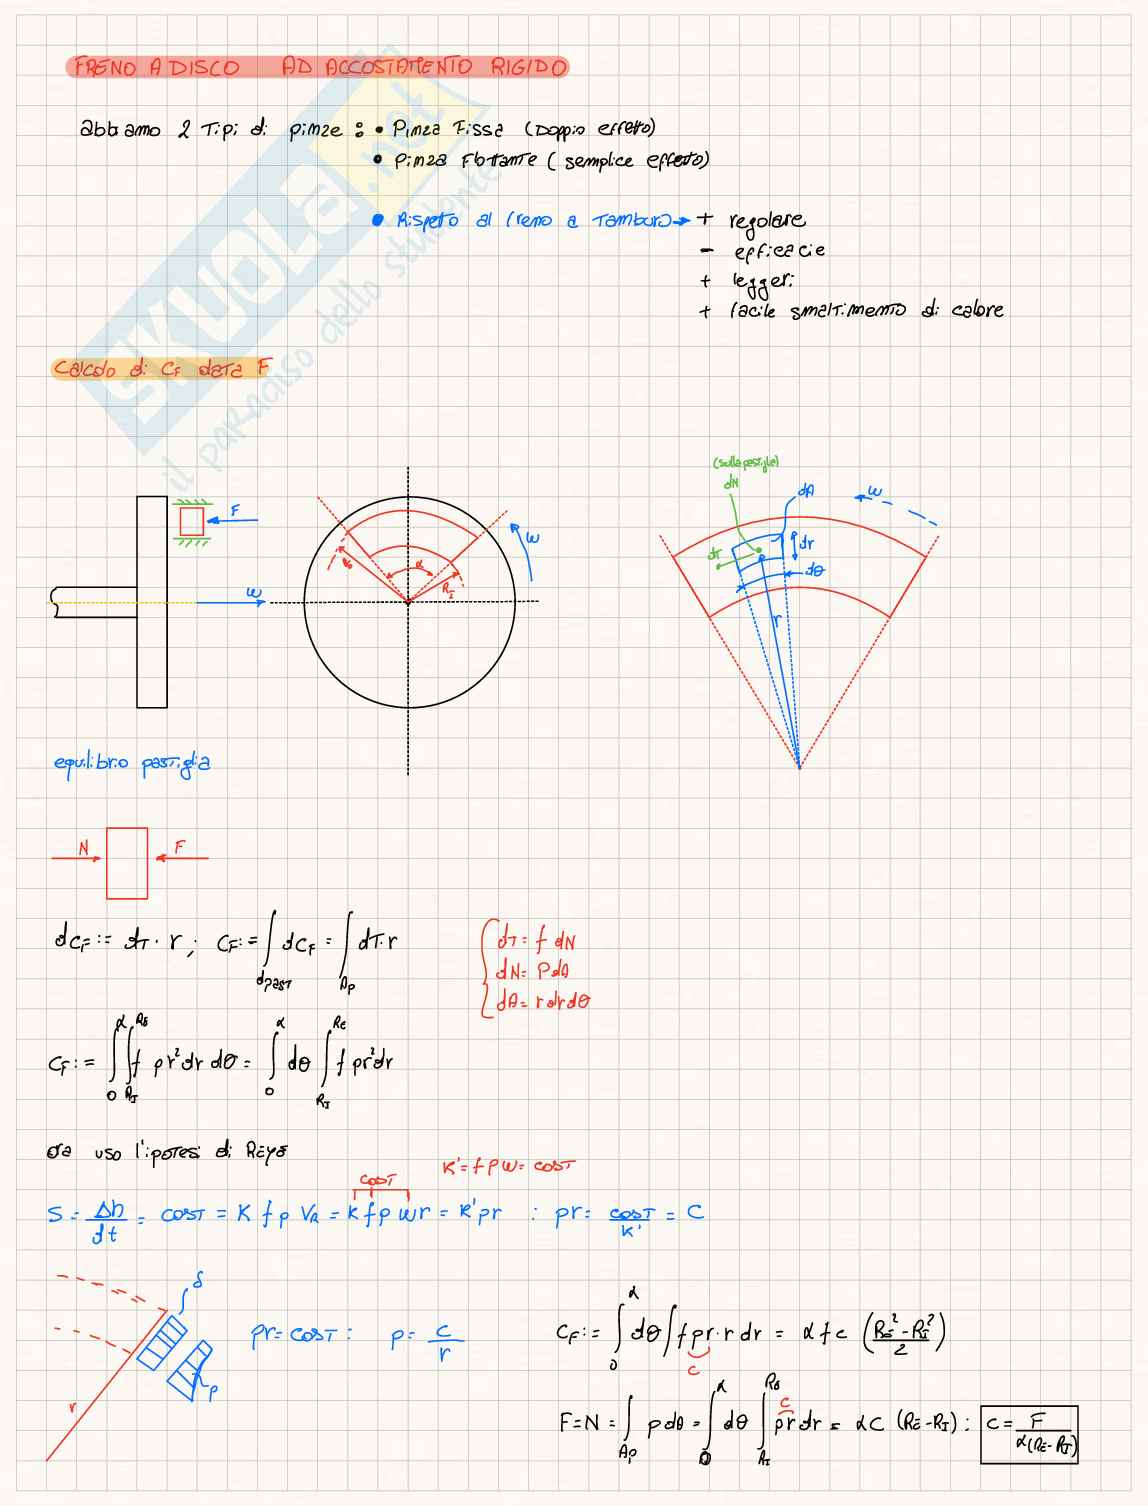 FRENO A DISCO AD ACCOSTAMENTO RIGIDO
abbiamo 2 Tipi di pinze : • Pinza Fissa (Doppio effetto)
• Pinza Flottante ( semplice effetto)
• Rispetto al freno a Tamburo → + regolare
- efficacie
+ leggeri
+ facile smaltimento di calore
Calcolo di CF data F
SKUOLA.net
il paradiso dello studente
(sulla pastiglie)
dN
dA
ω
F
dT
dr
dθ
ω
α
RI
ω
r
equilibrio pastiglia
N F
dCF := dT · r ; CF := ∫dpast dCF = ∫Ap dT·r
{ dT = f dN
dN = P dA
dA = r dr dθ
CF := ∫0^α ∫RI^RE f p r² dr dθ = ∫0^α dθ ∫RI^RE f p r² dr
ora uso l'ipotesi di REYE
K' = f P ω = COST
COST
S = Δh/dt = COST = K f p VR = K f p ω r = K' p r : p r = COST/K' = C
δ
pr = COST : p = c/r
p
r
CF := ∫0^α dθ ∫ f p r · r dr = α f c (RE² - RI²/2)
c
F = N = ∫Ap p dθ = ∫0^α dθ ∫RI^RE p r dr = α C (RE - RI) : C = F/α(RE - RI)
c